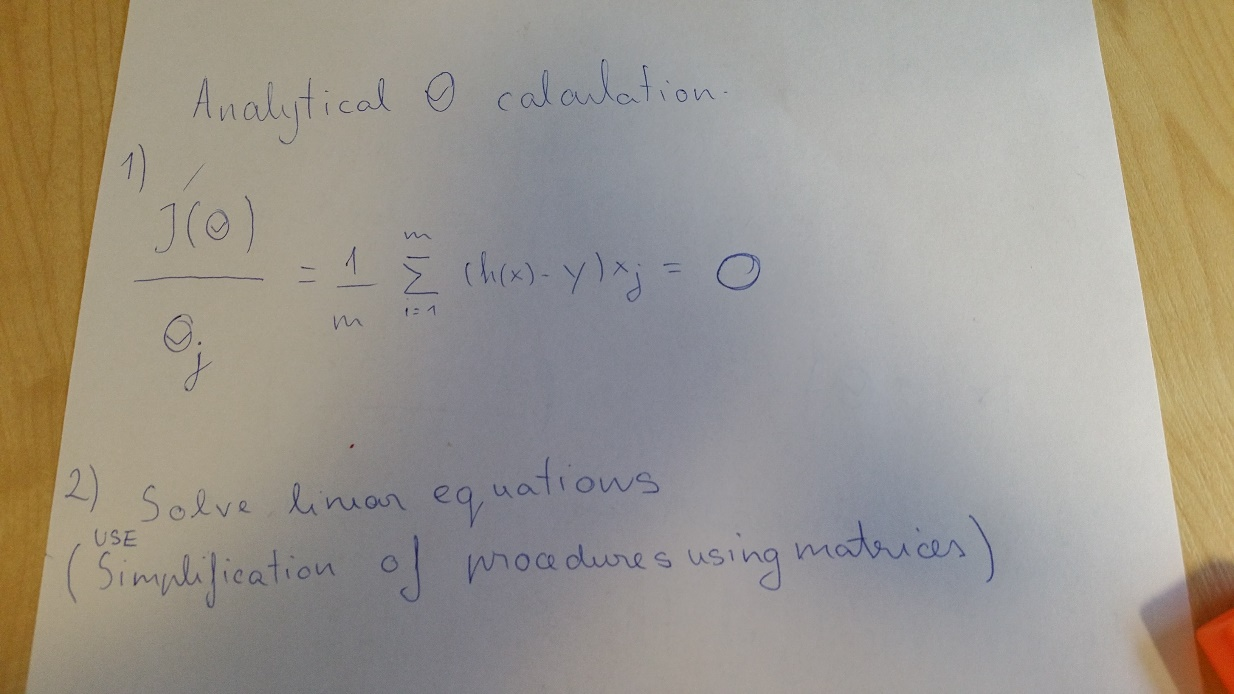 Analytical Θ calculation.
1)
J(Θ)
/
Θj
= 1/m m Σ i=1 (h(x) - y)xj = 0
2) Solve linear equations
USE
(Simplification of procedures using matrices)